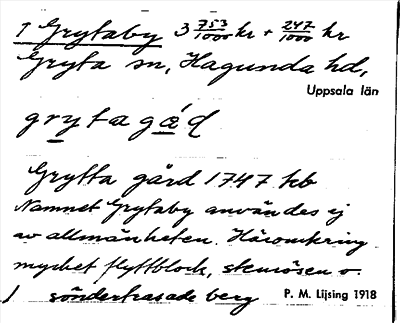 1 Grytaby 3 753/1000 kr + 247/1000 kr
Gryta sn, Hagunda hd,
Uppsala län
grytagạ́ḍ
Grytta gård 1747 kb
Namnet Grytaby användes ej
av allmänheten. Häromkring
mycket flyttblock, stenrösen o.
1 söndertrasade berg
P. M. Lijsing 1918